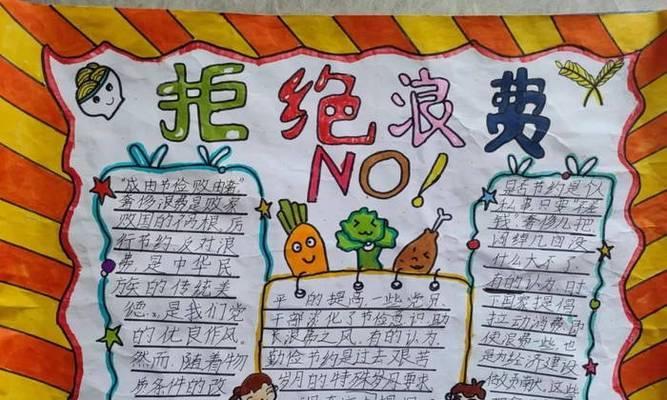 拒绝浪费
NO!
"成由节俭败由奢"
奢侈浪费是败家
败国的祸根，厉
行节约反对浪
费是中华民
万族的传统美
德，是我们党
的优良作风。
然而，随着物
质条件的改
平的提高，一些党员
干部淡化了节俭意识，助
长浪费之风，有的认为
勤俭节约是过去艰苦
岁月的特殊
是否节约是个
私事只要"不差
钱"奢侈
么大不了
有的认为，时
下国家提倡
拉动消费，即
使浪费一些，也
是为经济建设
做贡献，这些